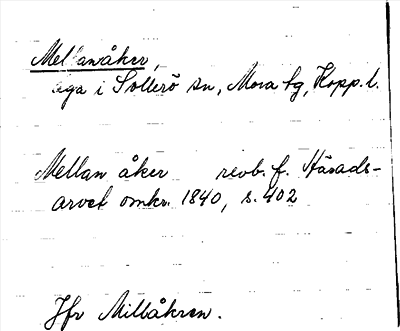 Mellanåker,
äga i Sollerö sn, Mora tg, Kopp. l.
Mellan åker revb. f. Härads-
arvet omkr. 1840, s. 402
Jfr Millåkren.